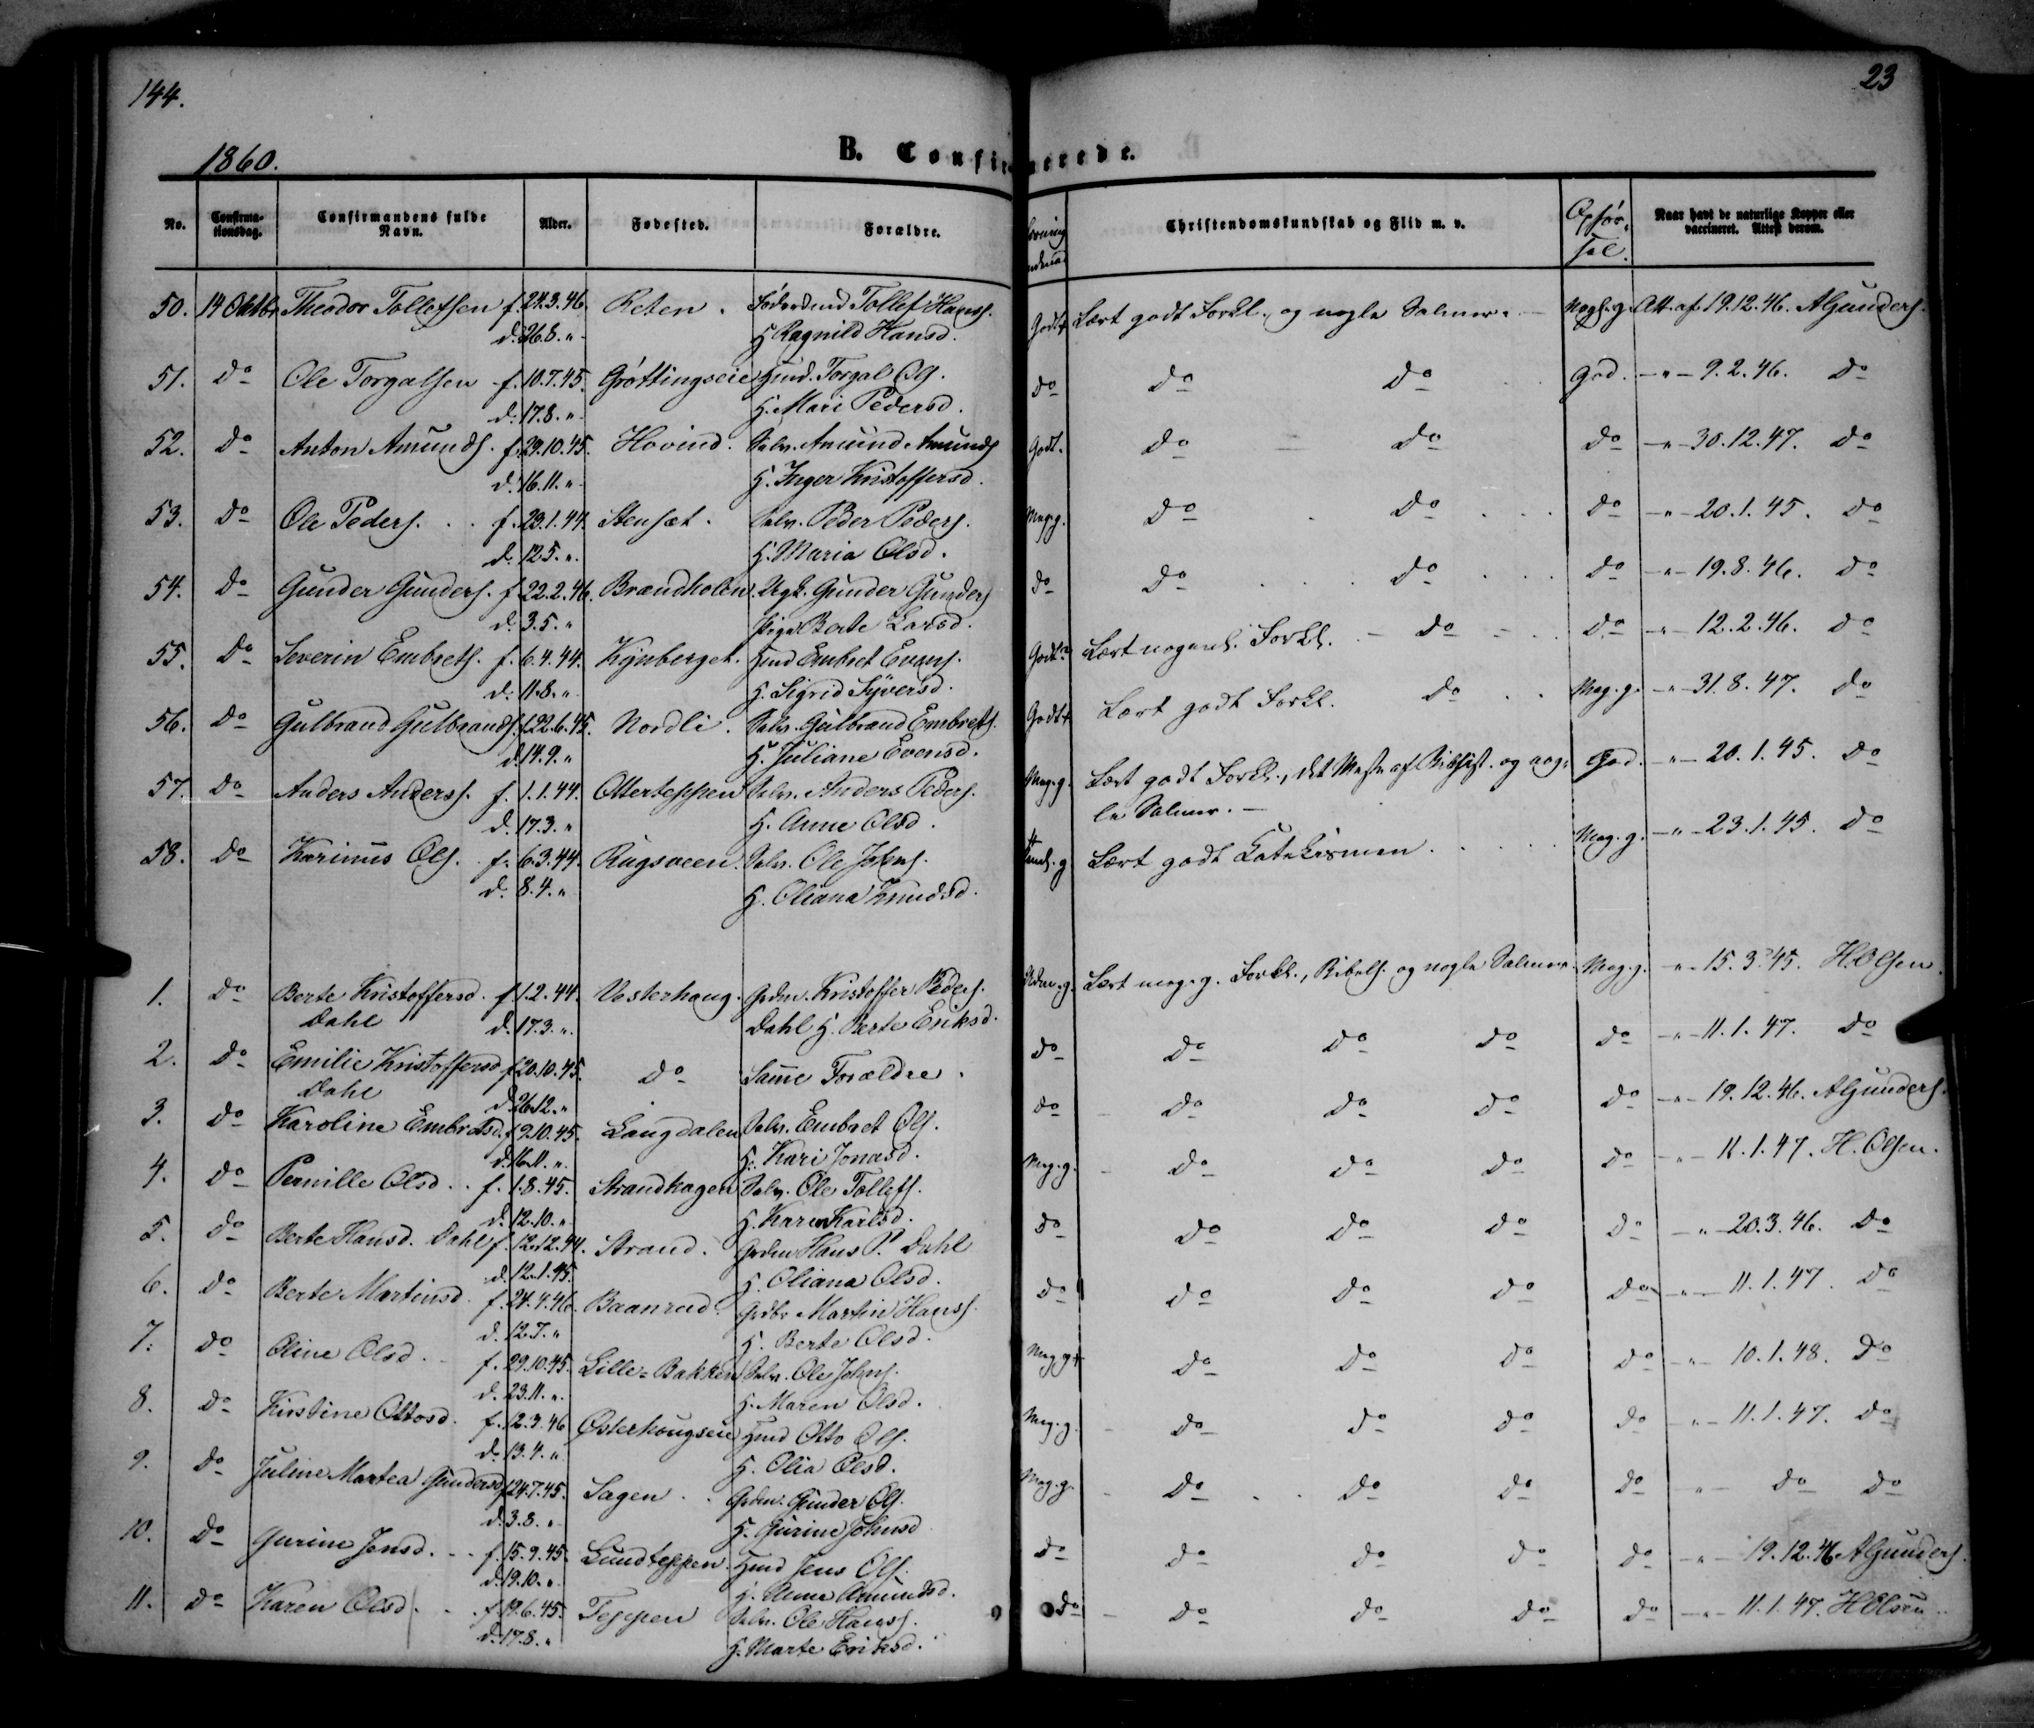 144.
23
1860.
B. Confirmerede.
No.
Confirma-
tionsdag.
Confirmandens fulde
Navn.
Alder.
Fødested.
Forældre.
Christendomskundskab og Flid m. v.
Opfør-
sel.
Naar havt de naturlige Kopper eller
vaccineret. Attest derom.
50. 14 Oktbr. Theodor Tollefsen f. 24.3.46. Reten. Tollef Hanss. Godt+ Lært godt Forkl. og nogle Salmer. Att. af 19.12.46. AGunders.
d. 26.8. " H Ragnild Hansd.
51. do Ole Torgalsen f. 10.7.45. Grøttingseie Hmd. Torgal Ols. do do do God. -"- 9.2.46. do
d. 17.8. " H. Mari Pedersd.
52. do Anton Amunds. f. 29.10.45. Hovind. Selv. Amund Amunds Godt. do do do -"- 30.12.47. do
d. 16.11. " H. Inger Kristoffersd.
53. do Ole Peders. f. 23.1.44. Stensæt. Selv. Peder Peders. Meg.g. do do do -"- 20.1.45. do
d. 12.5. " H. Maria Olsd.
54. do Gunder Gunders. f. 22.2.46. Brændholen Ungk. Gunder Gunders do do do do -"- 19.8.46. do
d. 3.5. " Pige Berte Larsd.
55. do Severin Embrets. f. 6.4.44. Kynberget. Hmd Embret Evens. Godt. Lært nogenl. Forkl. do do -"- 12.2.46. do
d. 11.8. " H. Sigrid Syversd.
56. do Gulbrand Gulbrands. f. 22.6.45. Nordli. Selv. Gulbrand Embrets. Godt+ Lært godt Forkl. do Meg.g. -"- 31.8.47. do
d. 14.9. " H. Juliane Evensd.
57. do Anders Anderss. f. 1.1.44. Otterteppen Selv. Anders Peders. Meg.g. Lært godt Forkl., det Meste af Bibhist. og nog- God. -"- 20.1.45. do
d. 17.3. " H. Anne Olsd. le Salmer.
58. do Karinus Ols. f. 6.3.44. Rugsveen. Selv. Ole Johns. Lært godt Katekismen. Meg.g. -"- 23.1.45. do
d. 8.4. " H. Oliana Knudsd.
1. do Berte Kristoffersd. f. 1.2.44. Vesterhaug. Grdm. Kristoffer Peders. Lært meg.g. Forkl., Bibelh. og nogle Salmer. Meg.g. -"- 15.3.45. H.Olsen.
Dahl d. 17.3. " Dahl H. Berte Eriksd.
2. do Emilie Kristoffersd. f. 20.10.45. do Samme Forældre. do do do do do -"- 11.1.47. do
Dahl d. 26.12. "
3. do Karoline Embretsd. f. 9.10.45. Langdalen Selv. Embret Ols. do do do do do -"- 19.12.46. AGunders.
d. 16.11. " H. Kari Jonasd.
4. do Pernille Olsd. f. 1.8.45. Strandhagen Selv. Ole Tollefs. Meg.g. do do do do -"- 11.1.47. H.Olsen.
d. 12.10. " H. Karen Karlsd.
5. do Berte Hansd. Dahl f. 12.12.44. Strand. Grdm Hans P. Dahl do do do do do -"- 20.3.46. do
d. 12.1.45. H. Oliana Olsd.
6. do Berte Martinsd. f. 24.4.46. Baanrud. Grdbr Martin Hanss. do do do do do -"- 11.1.47. do
d. 12.7. " H. Berte Olsd.
7. do Oline Olsd. f. 29.10.45. Lille-Bakken Selv. Ole Johns. Meg.g+ do do do do -"- 10.1.48. do
d. 23.11. " H. Maren Olsd.
8. do Kirstine Ottosd. f. 12.3.46 Østerhougseie Hmd Otto Ols. Meg.g. do do do do -"- 11.1.47. do
d. 13.4. " H. Olia Olsd.
9. do Juline Martea Gundersd f. 24.7.45. Sagen. Grdm. Gunder Ols. Meg.g. do do do do -"- do do
d. 3.8. " H. Gurine Johnsd
10. do Gurine Jensd. f. 15.9.45. Lundteppen. Hmd Jens Ols. do do do do do -"- 19.12.46 AGunders.
d. 19.10. " H. Anne Amundsd.
11. do Karen Olsd. f. 19.6.45. Teppen Selv. Ole Hanss. do do do do do -"- 11.1.47. HOlsen
d. 17.8. " H. Marte Eriksd.